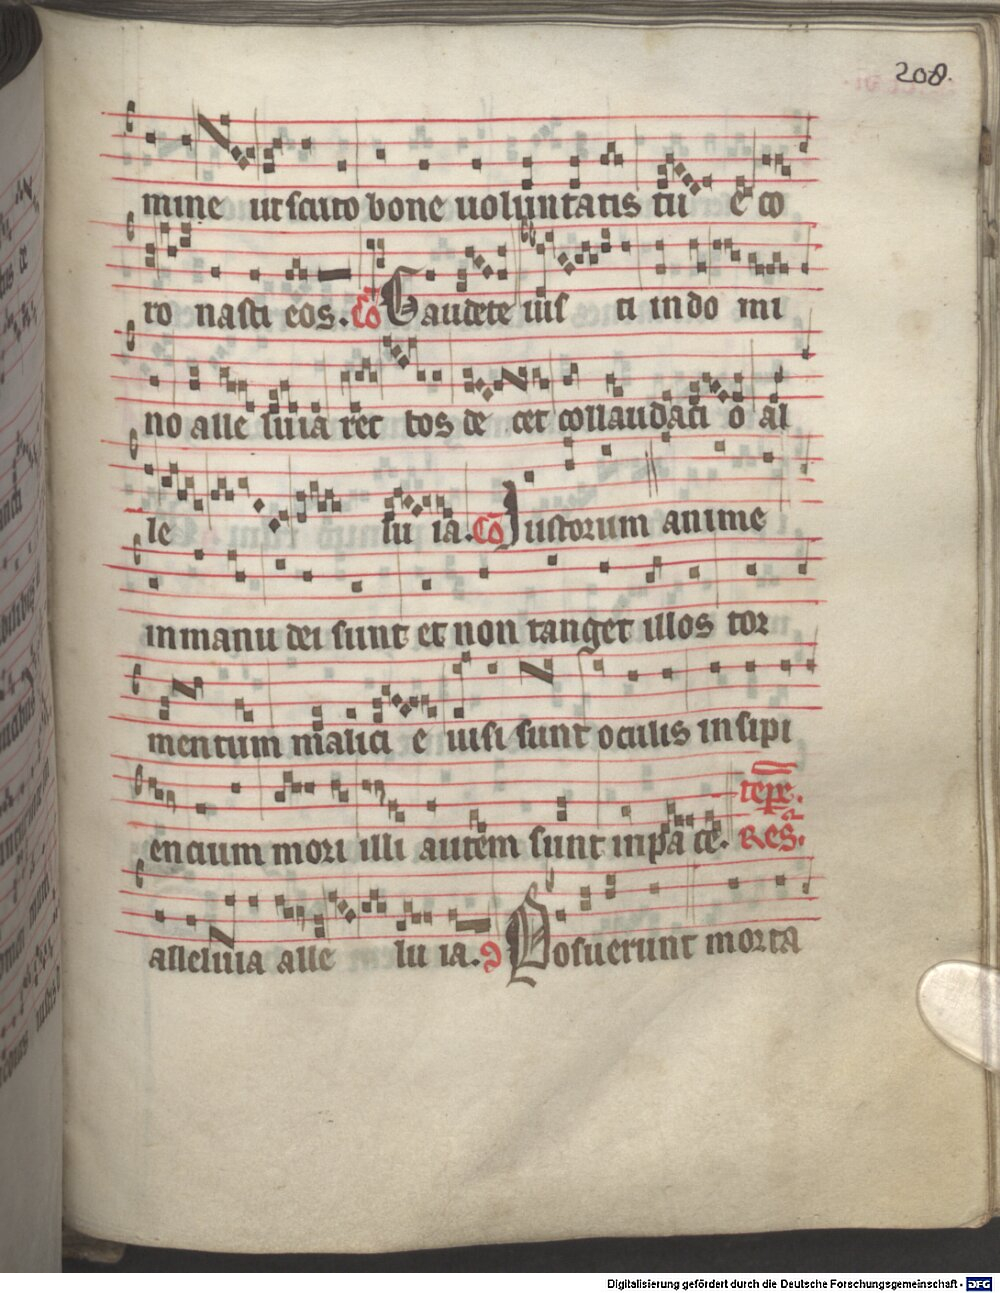 208.
mine ut scuto bone uoluntatis tu e co
ro nasti eos. Cō Gaudete ius ti in do mi
no alle luia rec tos de cet collaudati o al
le lu ia. Cō Iustorum anime
in manu dei sunt et non tanget illos tor
mentum malici e uisi sunt oculis insipi
encium mori illi autem sunt in pa ce.
Res.
alleluia alle lu ia. Posuerunt morta
Digitalisierung gefördert durch die Deutsche Forschungsgemeinschaft - DFG